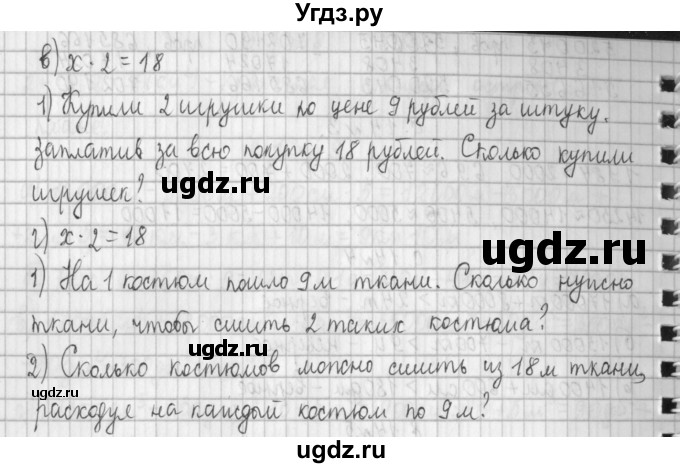 Угдз.ру
в) x · 2 = 18
1) Купили 2 игрушки по цене 9 рублей за штуку,
заплатив за всю покупку 18 рублей. Сколько купили
игрушек?
ugdz.ru
ugdz.ru
г) x · 2 = 18
1) На 1 костюм пошло 9 м ткани. Сколько нужно
ткани, чтобы сшить 2 таких костюма?
ugdz.ru
2) Сколько костюмов можно сшить из 18 м ткани,
расходуя на каждый костюм по 9 м?
ugdz.ru
ugdz.ru
ugdz.ru